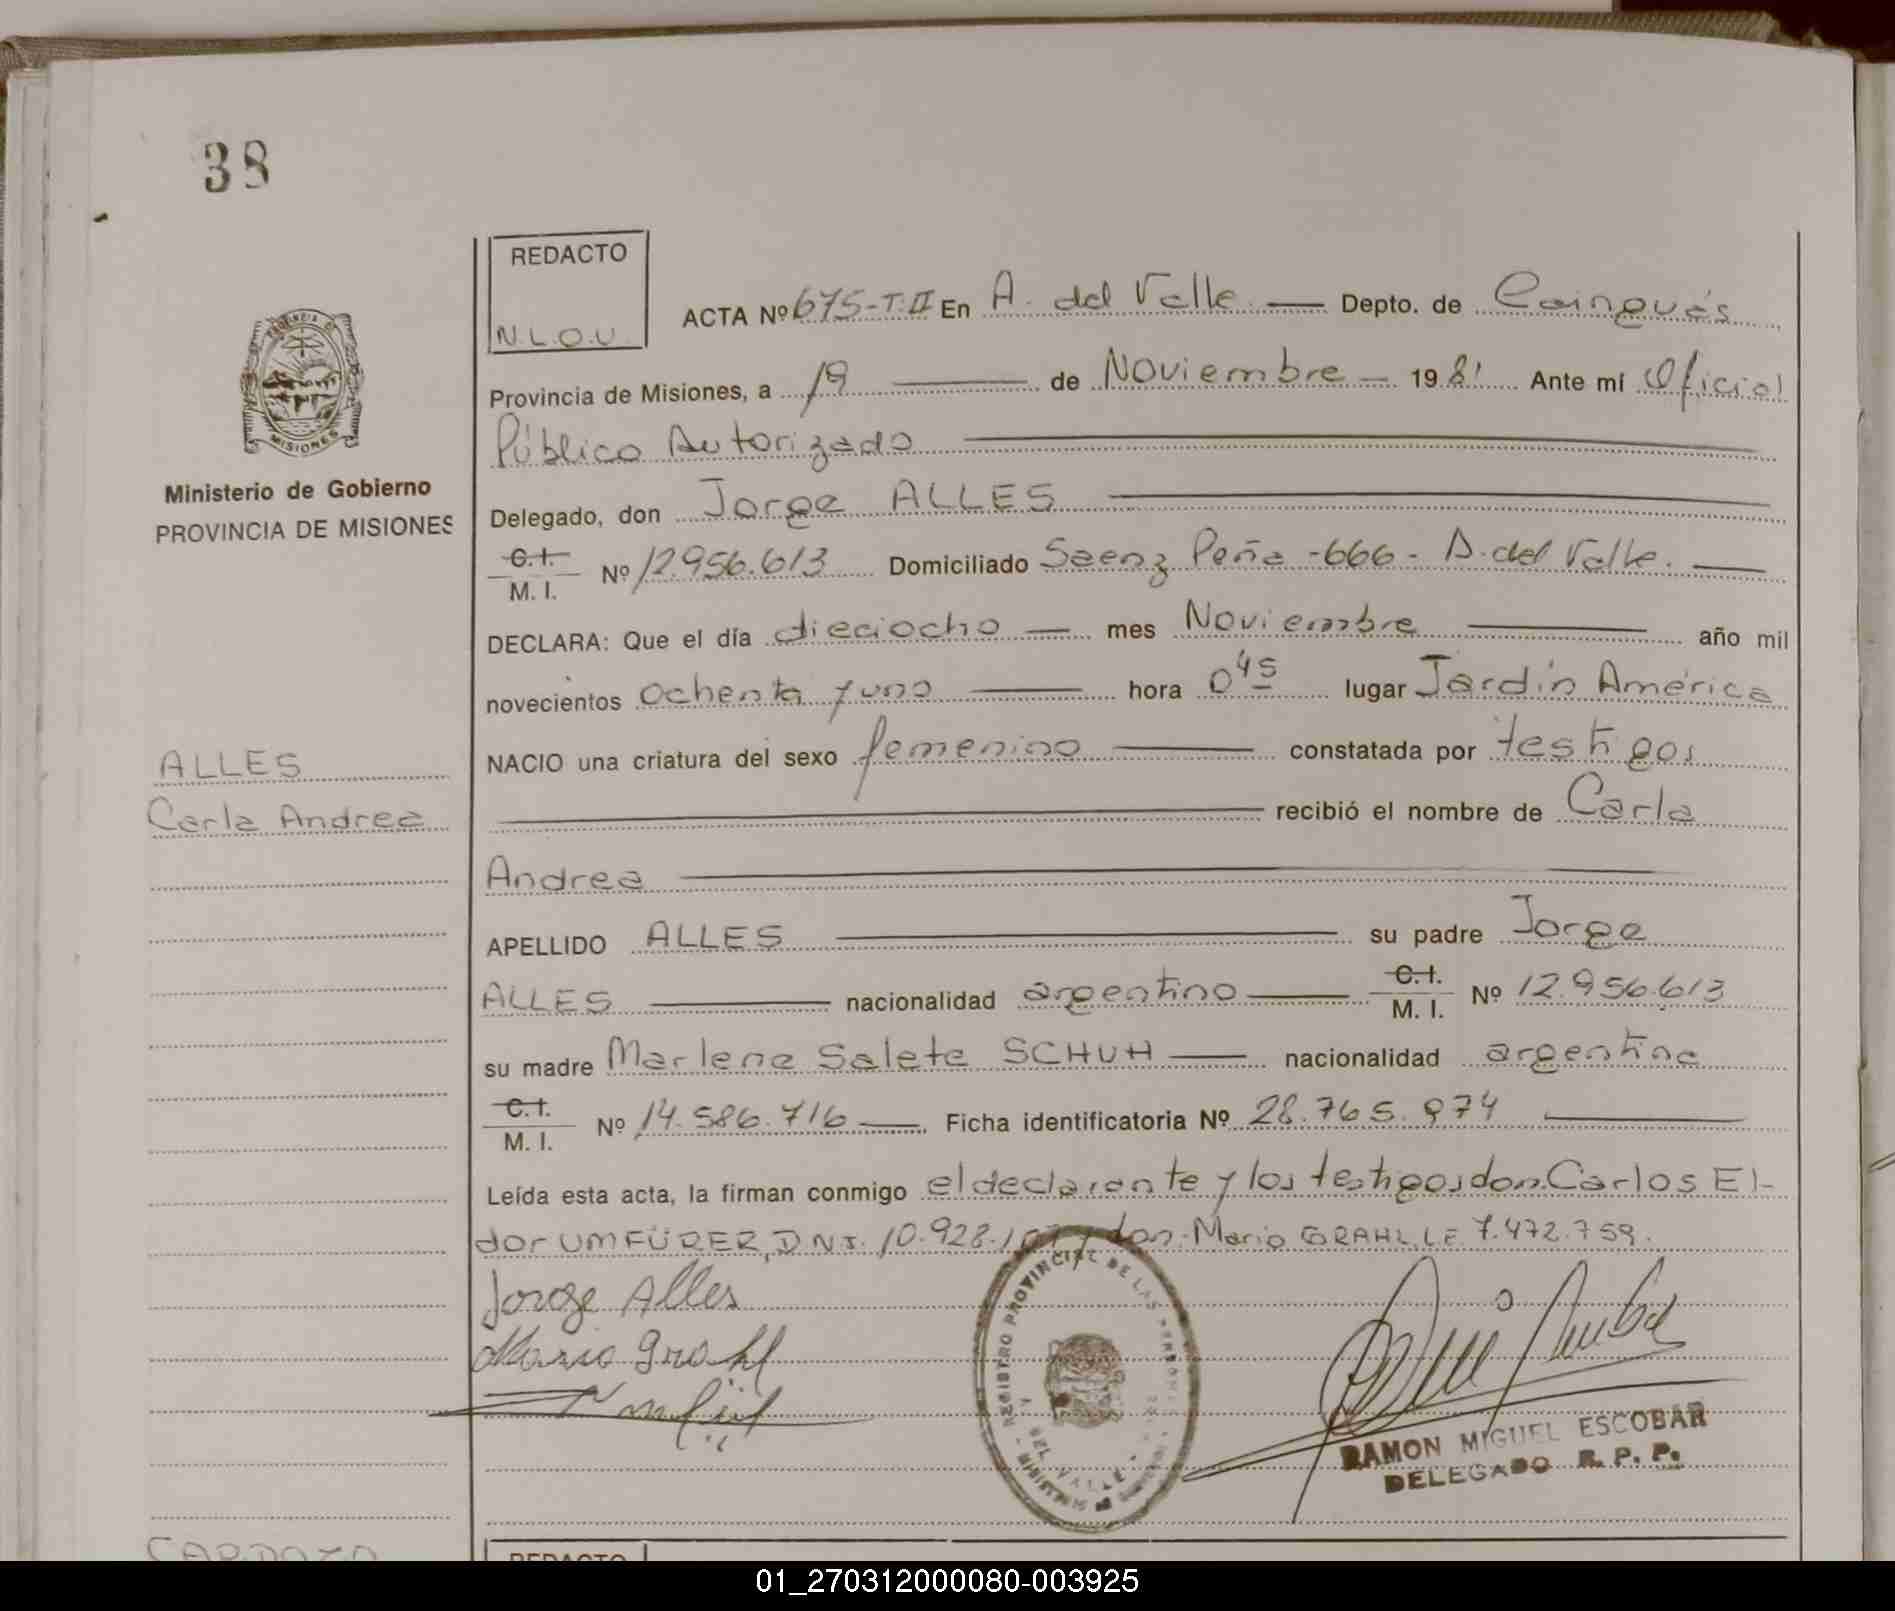 38
REDACTO
N.L.O.U.
ACTA Nº 675-T.II En A. del Valle Depto. de Cainguás
Provincia de Misiones, a 19 de Noviembre 1981 Ante mí Oficial
Público Autorizado
Ministerio de Gobierno
PROVINCIA DE MISIONES
Delegado, don Jorge ALLES
C.I. M. I. Nº 12.956.613 Domiciliado Saenz Peña -666- A. del Valle.
DECLARA: Que el día dieciocho mes Noviembre año mil
novecientos ochenta y uno hora 0 45 lugar Jardín América
NACIO una criatura del sexo femenino constatada por testigos
recibió el nombre de Carla
Andrea
ALLES
Carla Andrea
APELLIDO ALLES su padre Jorge
ALLES nacionalidad argentino C.I. M. I. Nº 12.956.613
su madre Marlene Salete SCHUH nacionalidad argentina
C.I. M. I. Nº 14.586.716 Ficha identificatoria Nº 28.765.974
Leída esta acta, la firman conmigo el declarante y los testigos don. Carlos El-
dor UMFÜRER, D.N.I. 10.928. don. Mario GRAHL L.E. 7.472.759.
Jorge Alles
Mario Grahl
REGISTRO PROVINCIAL DE LAS PERSONAS
DEL VALLE
MISIONES
RAMON MIGUEL ESCOBAR
DELEGADO R. P. P.
CARDOZO
REDACTO
01_270312000080-003925